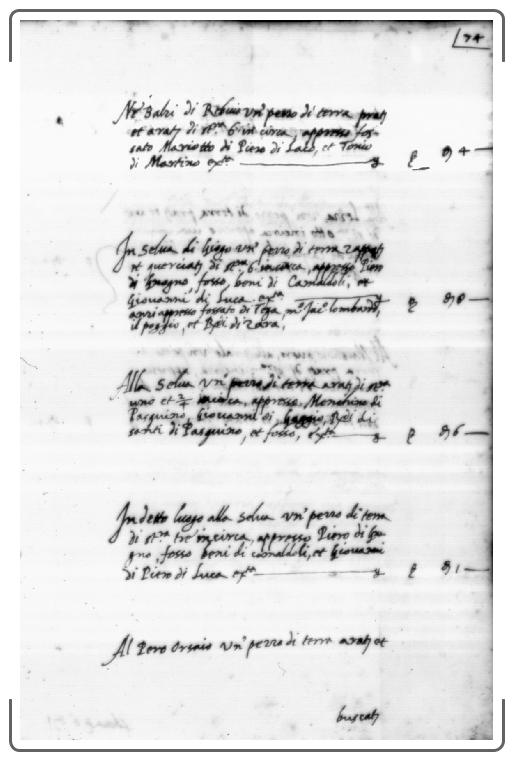 74
Ne Balzi di Rebuio un' pezzo di terra prati
et arati di st.ra 6 in circa, appresso fos-
sato Mariotto di Piero di Laco, et Tonio
di Martino ex.ta 4
In Selva di Giogo un' pezzo di terra
et querciati di st.ra 6 in circa, appresso Piero
di fosso, beni di Camaldoli, et
Giovanni di Luca ex.ta 8
anzi appresso fossato di Tega m.o Jac.o lombardo,
il poggio, et Rdi di Zara,
Alla Selva un' pezzo di terra arati di st.ra
uno et 3/4 in circa, appresso, Menchino di
Pasquino, Giovanni di Gaggio, Rdi di
Santi di Pasquino, et fosso, ex.ta 6
In detto luogo alla Selva un' pezzo di terra
di st.ra tre in circa, appresso Piero di
gno, fosso beni di Camaldoli, et Giovanni
di Piero di Luca ex.ta 1
Al Pero Orsaio un' pezzo di terra arati et
buscati